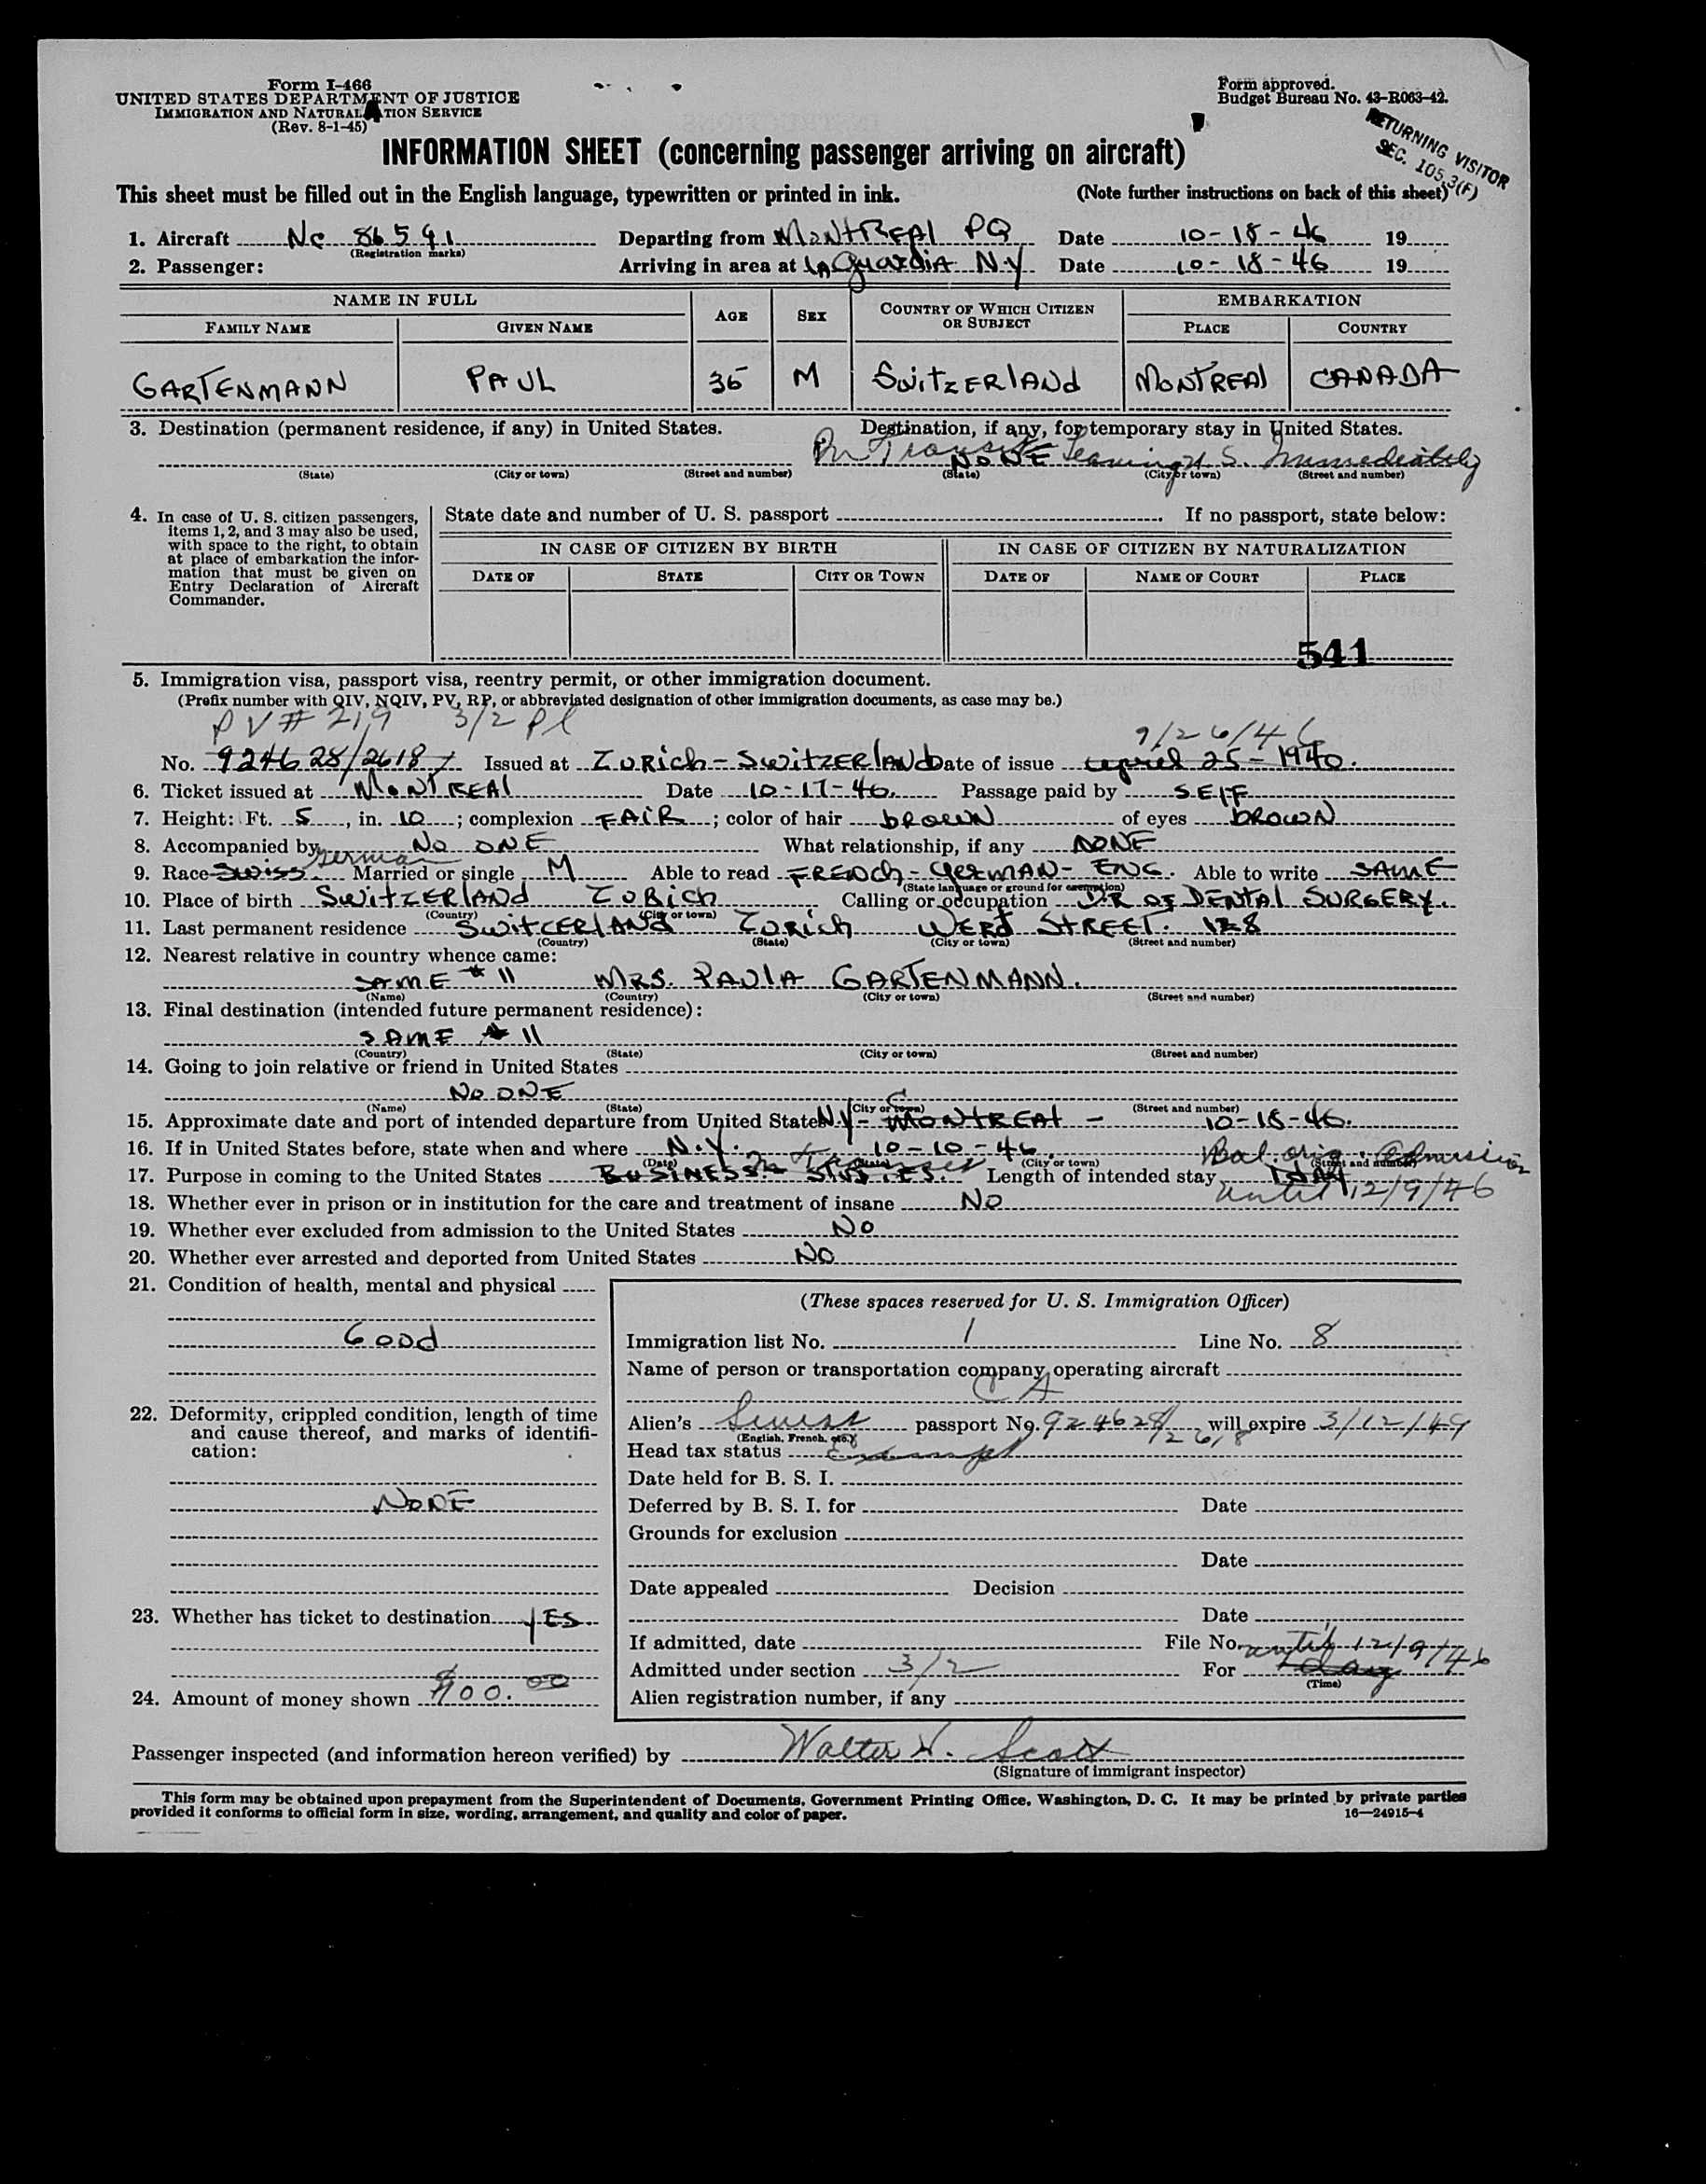 Form I-466
UNITED STATES DEPARTMENT OF JUSTICE
IMMIGRATION AND NATURALIZATION SERVICE
(Rev. 8-1-45)
Form approved.
Budget Bureau No. 43-R063-42.
RETURNING VISITOR
SEC. 105.3(F)
INFORMATION SHEET (concerning passenger arriving on aircraft)
This sheet must be filled out in the English language, typewritten or printed in ink. (Note further instructions on back of this sheet)
1. Aircraft Nc 86591 Departing from MONTREAL PQ Date 10-18-46 19
(Registration marks)
2. Passenger: Arriving in area at LAGUARDIA N.Y Date 10-18-46 19
NAME IN FULL AGE SEX COUNTRY OF WHICH CITIZEN OR SUBJECT EMBARKATION
FAMILY NAME GIVEN NAME PLACE COUNTRY
GARTENMANN PAUL 35 M SWITZERLAND MONTREAL CANADA
3. Destination (permanent residence, if any) in United States. Destination, if any, for temporary stay in United States.
In Transit Leaving U.S. Immediately
NONE
(State) (City or town) (Street and number) (State) (City or town) (Street and number)
4. In case of U. S. citizen passengers, items 1, 2, and 3 may also be used, with space to the right, to obtain at place of embarkation the information that must be given on Entry Declaration of Aircraft Commander.
State date and number of U. S. passport If no passport, state below:
IN CASE OF CITIZEN BY BIRTH IN CASE OF CITIZEN BY NATURALIZATION
DATE OF STATE CITY OR TOWN DATE OF NAME OF COURT PLACE
541
5. Immigration visa, passport visa, reentry permit, or other immigration document.
(Prefix number with QIV, NQIV, PV, RP, or abbreviated designation of other immigration documents, as case may be.)
PV # 219 3/2 Pl 9/26/46
No. 924628/2618 Issued at ZURICH - SWITZERLAND Date of issue April 25-1940.
6. Ticket issued at MONTREAL Date 10-17-46. Passage paid by SELF
7. Height: Ft. 5, in. 10; complexion FAIR; color of hair BROWN of eyes BROWN
8. Accompanied by NO ONE What relationship, if any NONE
German
9. Race SWISS Married or single M Able to read FRENCH - GERMAN - ENG. Able to write SAME
(State language or ground for exemption)
10. Place of birth SWITZERLAND ZURICH Calling or occupation DR OF DENTAL SURGERY.
(Country) (City or town)
11. Last permanent residence SWITZERLAND ZURICH WERD STREET. 128
(Country) (State) (City or town) (Street and number)
12. Nearest relative in country whence came:
SAME # 11 MRS. PAULA GARTENMANN.
(Name) (Country) (City or town) (Street and number)
13. Final destination (intended future permanent residence):
SAME # 11
(Country) (State) (City or town) (Street and number)
14. Going to join relative or friend in United States
NO ONE
(Name) (State) (City or town) (Street and number)
15. Approximate date and port of intended departure from United States N.Y - MONTREAL - 10-18-46.
16. If in United States before, state when and where N.Y. 10-10-46. Bal. orig. admission
(Date) (State) (City or town) (Street and number)
17. Purpose in coming to the United States BUSINESS Length of intended stay 1 DAY
until 12/9/46
18. Whether ever in prison or in institution for the care and treatment of insane No
19. Whether ever excluded from admission to the United States No
20. Whether ever arrested and deported from United States No
21. Condition of health, mental and physical
Good
22. Deformity, crippled condition, length of time and cause thereof, and marks of identification:
NONE
23. Whether has ticket to destination YES
24. Amount of money shown $100.00
(These spaces reserved for U. S. Immigration Officer)
Immigration list No. 1 Line No. 8
Name of person or transportation company operating aircraft
C A
Alien's Swiss passport No. 924628/2618 will expire 3/12/49
(English, French, etc.)
Head tax status Exempt
Date held for B. S. I.
Deferred by B. S. I. for Date
Grounds for exclusion
Date
Date appealed Decision
Date
If admitted, date File No. until 12/9/46
Admitted under section 3/2 For 1 day
(Time)
Alien registration number, if any
Passenger inspected (and information hereon verified) by Walter W. Scott
(Signature of immigrant inspector)
This form may be obtained upon prepayment from the Superintendent of Documents, Government Printing Office, Washington, D. C. It may be printed by private parties
provided it conforms to official form in size, wording, arrangement, and quality and color of paper. 16—24915-4